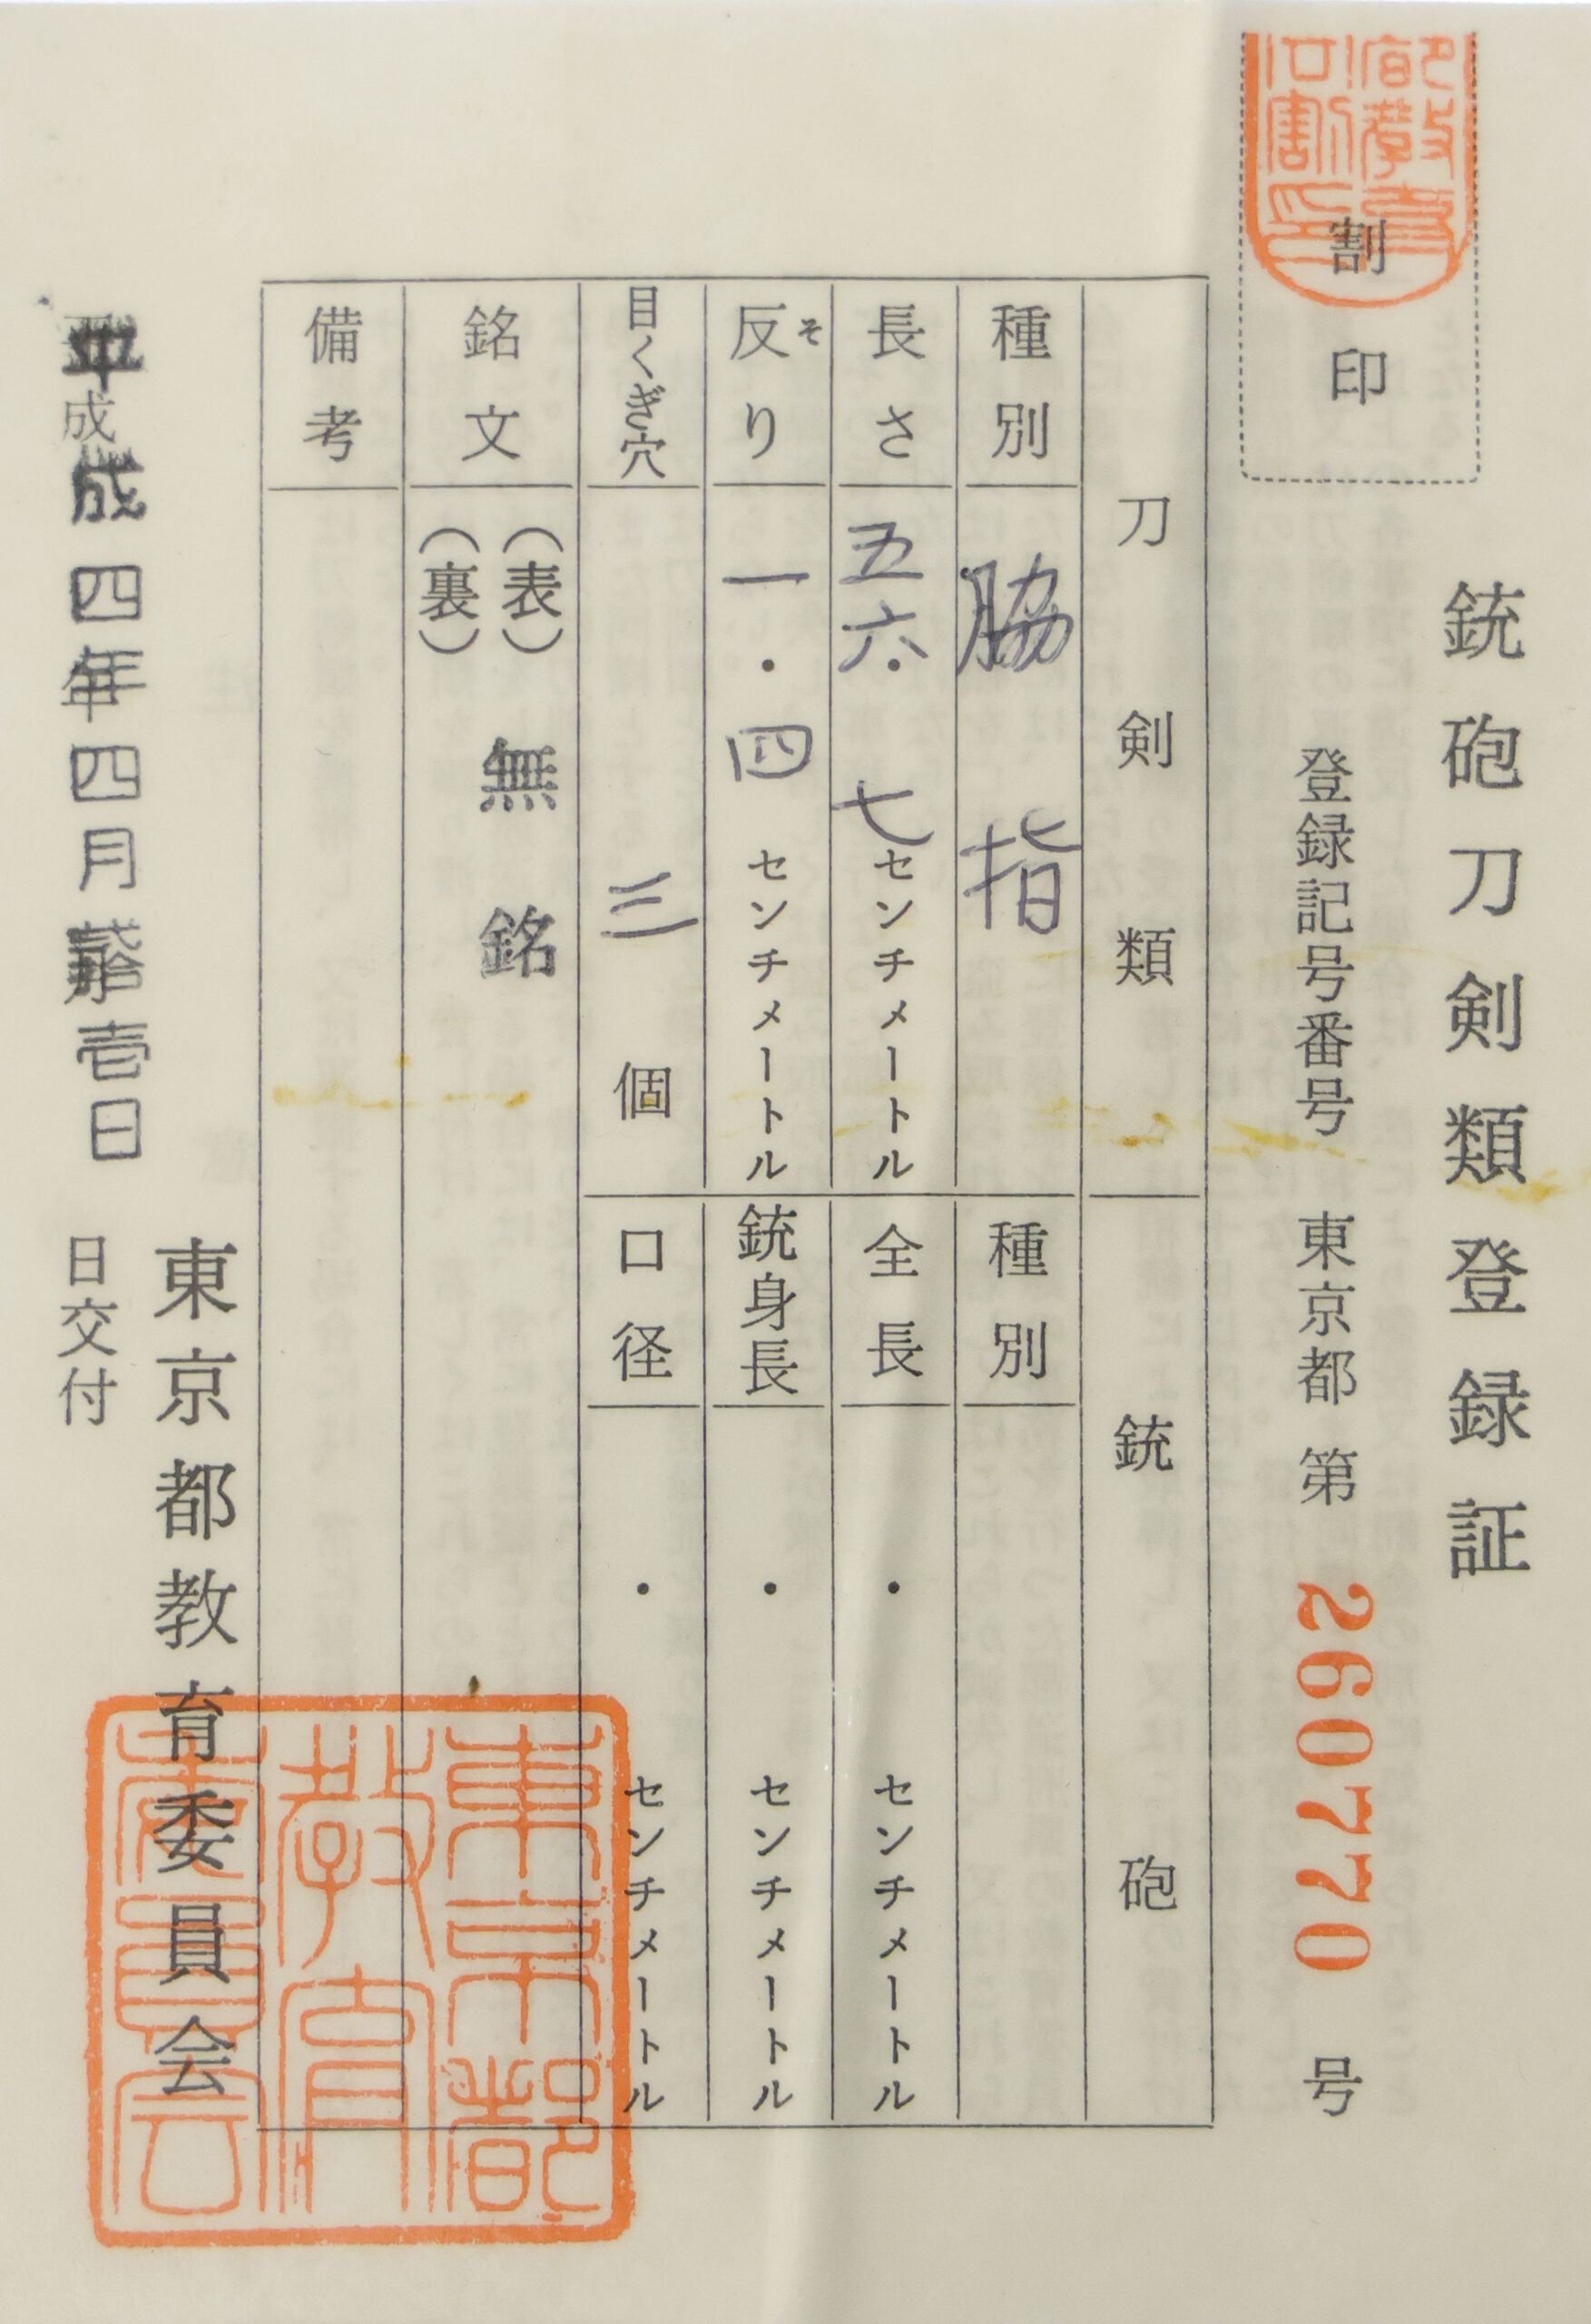 銃砲刀剣類登録証
割印
登録記号番号 東京都 第 260770 号
刀剣類
銃砲
種別 脇指
種別
長さ 五六.七センチメートル
全長 . センチメートル
反り 一.四センチメートル
そ
銃身長 . センチメートル
目くぎ穴 三 個
口径 . センチメートル
銘文 (表) 無銘
(裏)
備考
東京都教育委員会
平成四年四月 壱日
日交付
東京都
教育
委員会